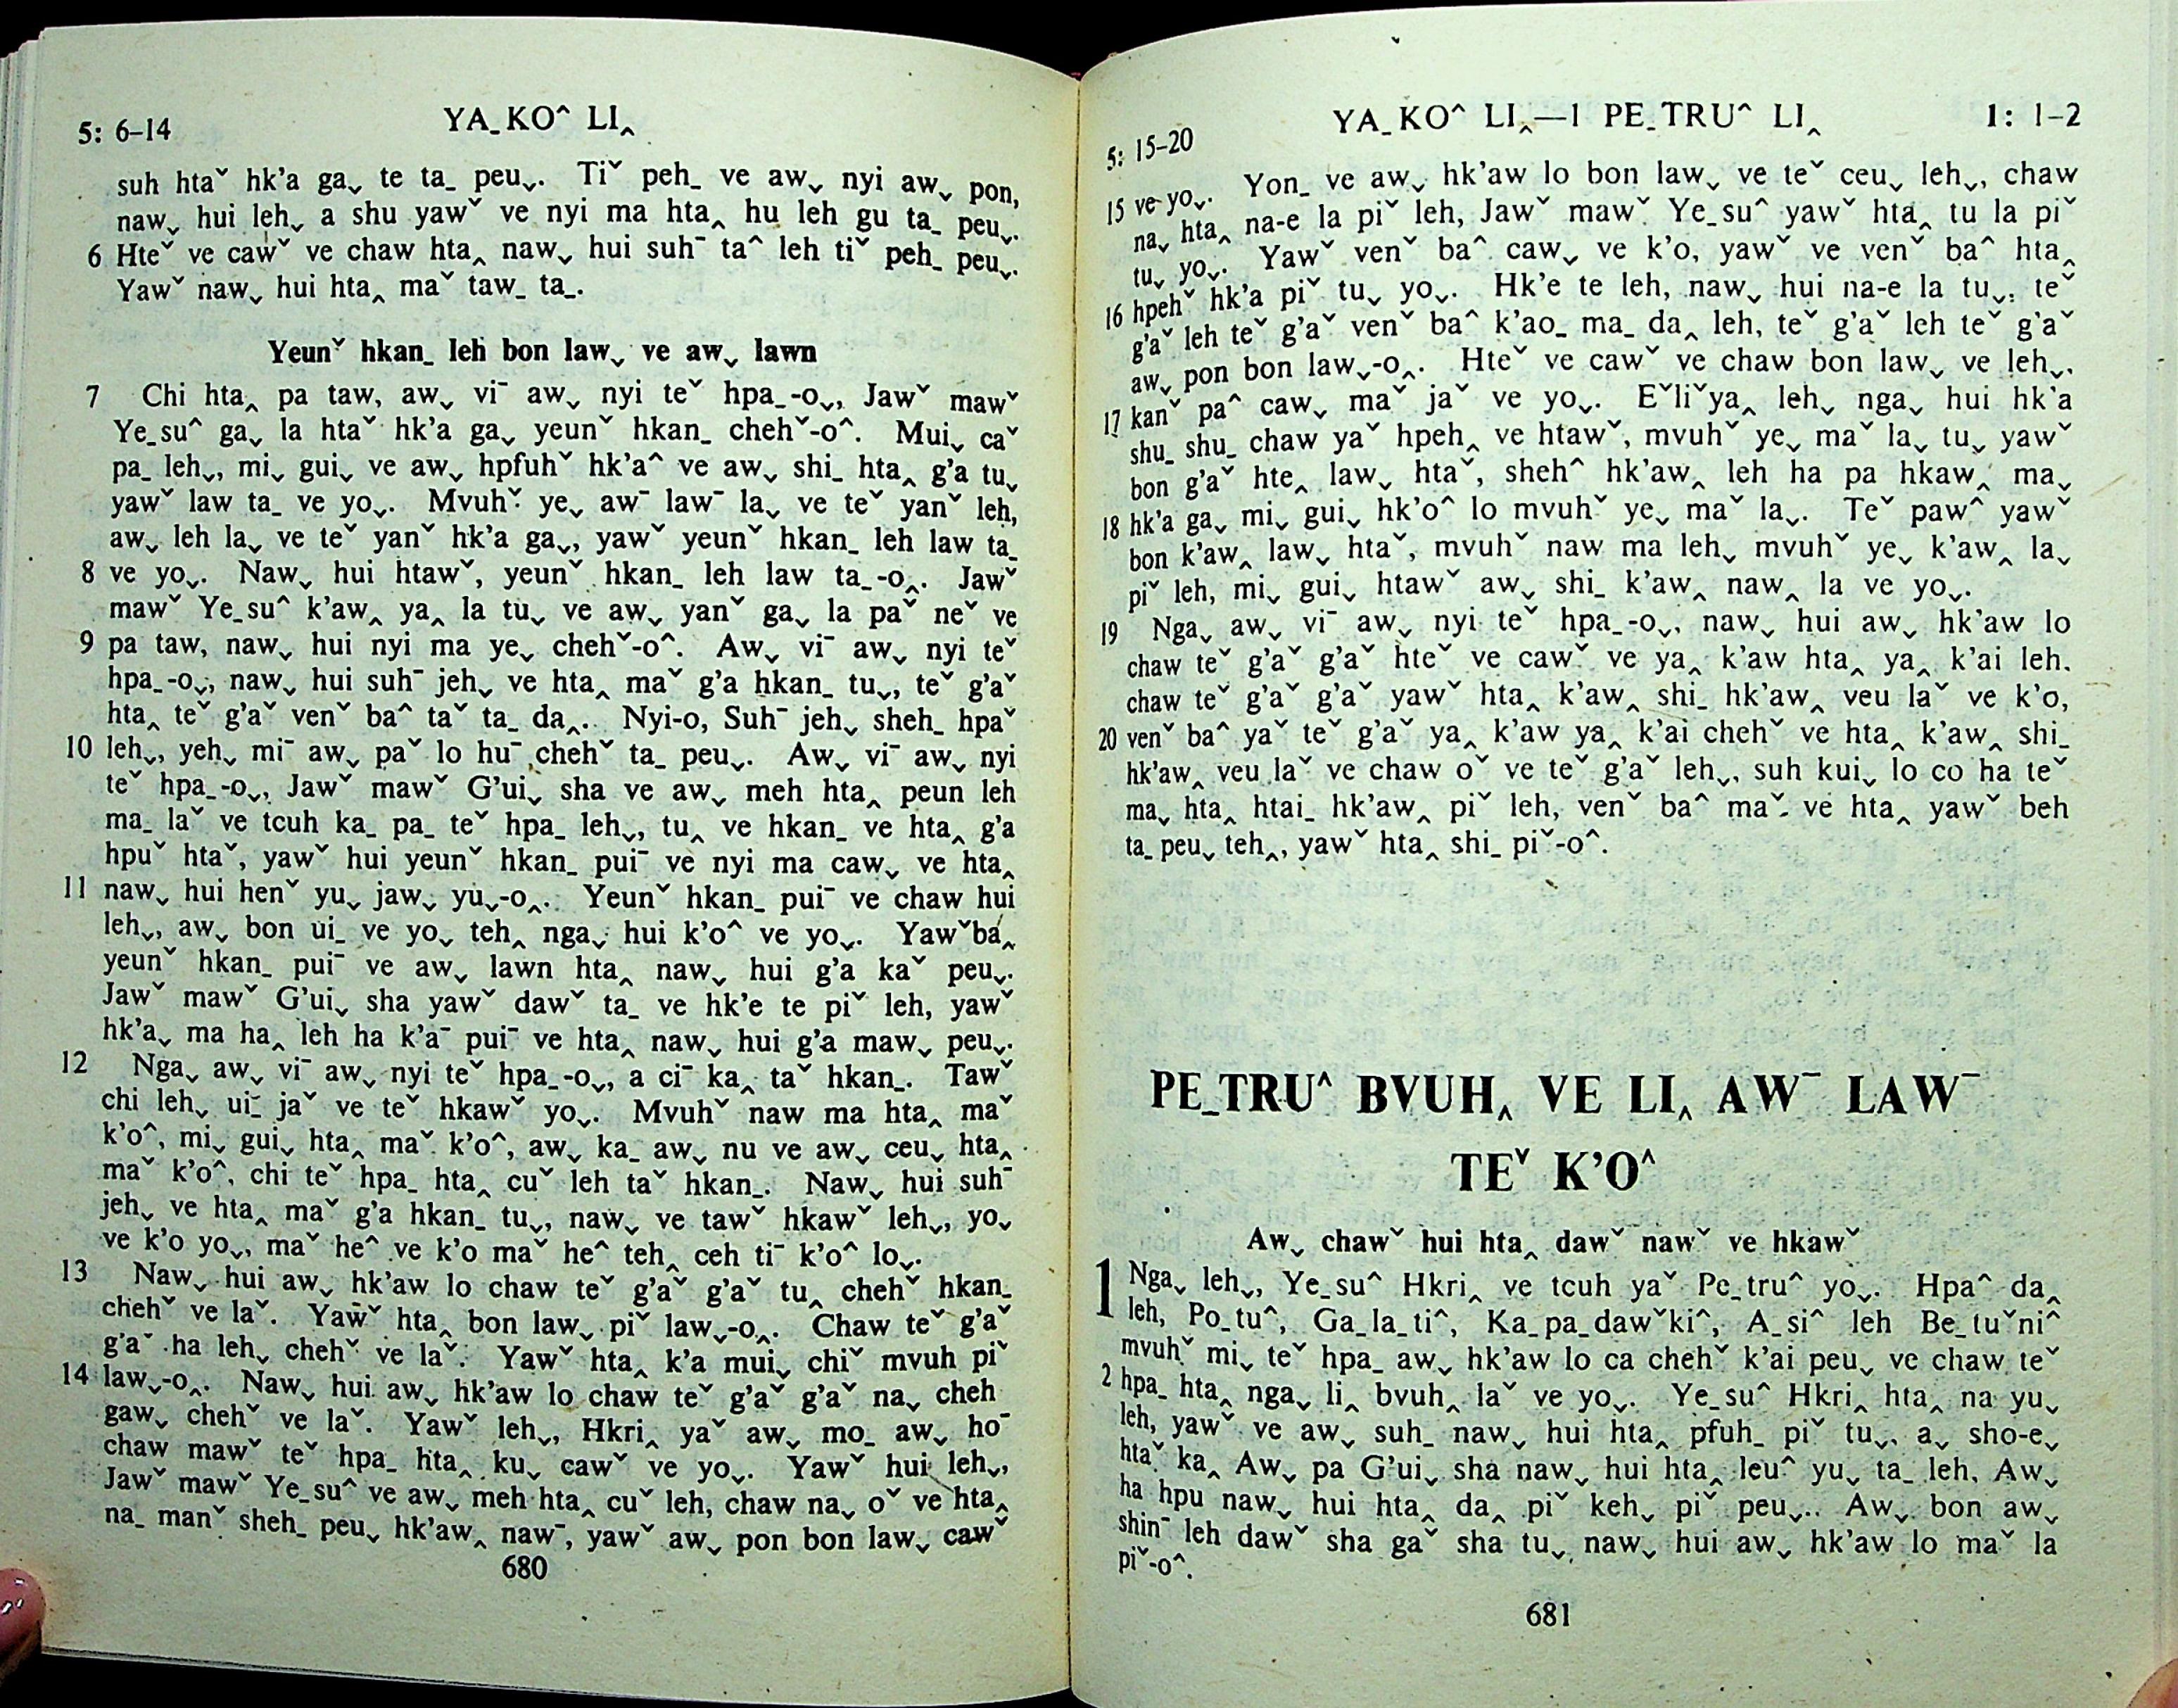 5: 6–14
YA_KO^ LI‸
suh htaˇ hk'a ga˯ te ta_ peu˯. Tiˇ peh_ ve aw˯ nyi aw˯ pon,
naw˯ hui leh˯ a shu yawˇ ve nyi ma hta‸ hu leh gu ta_ peu˯.
6 Hteˇ ve cawˇ ve chaw hta‸ naw˯ hui suh¯ ta^ leh tiˇ peh_ peu˯.
Yawˇ naw˯ hui hta‸ maˇ taw_ ta_.
Yeunˇ hkan_ leh bon law˯ ve aw˯ lawn
7 Chi hta‸ pa taw, aw˯ vi¯ aw˯ nyi teˇ hpa_-o˯, Jawˇ mawˇ
Ye_su^ ga˯ la htaˇ hk'a ga˯ yeunˇ hkan_ chehˇ-o^. Mui˯ caˇ
pa_ leh˯, mi˯ gui˯ ve aw˯ hpfuhˇ hk'a^ ve aw˯ shi_ hta‸ g'a tu˯
yawˇ law ta_ ve yo˯. Mvuhˇ ye˯ aw¯ law¯ la˯ ve teˇ yanˇ leh,
aw˯ leh la˯ ve teˇ yanˇ hk'a ga˯, yawˇ yeunˇ hkan_ leh law ta_
8 ve yo˯. Naw˯ hui htawˇ, yeunˇ hkan_ leh law ta_-o‸. Jawˇ
mawˇ Ye_su^ k'aw‸ ya‸ la tu˯ ve aw˯ yanˇ ga˯ la paˇ neˇ ve
9 pa taw, naw˯ hui nyi ma ye˯ chehˇ-o^. Aw˯ vi¯ aw˯ nyi teˇ
hpa_-o˯, naw˯ hui suh¯ jeh˯ ve hta‸ maˇ g'a hkan_ tu˯, teˇ g'aˇ
hta‸ teˇ g'aˇ venˇ ba^ taˇ ta_ da‸. Nyi-o, Suh¯ jeh˯ sheh_ hpaˇ
10 leh˯, yeh˯ mi¯ aw˯ paˇ lo hu¯ chehˇ ta_ peu˯. Aw˯ vi¯ aw˯ nyi
teˇ hpa_-o˯, Jawˇ mawˇ G'ui˯ sha ve aw˯ meh hta‸ peun leh
ma_ laˇ ve tcuh ka_ pa_ teˇ hpa_ leh˯, tu‸ ve hkan_ ve hta‸ g'a
hpuˇ htaˇ, yawˇ hui yeunˇ hkan_ pui¯ ve nyi ma caw˯ ve hta‸
11 naw˯ hui henˇ yu˯ jaw˯ yu˯-o‸. Yeunˇ hkan_ pui¯ ve chaw hui
leh˯, aw˯ bon ui_ ve yo˯ teh‸ nga˯ hui k'o^ ve yo˯. Yawˇba‸
yeunˇ hkan_ pui¯ ve aw˯ lawn hta‸ naw˯ hui g'a kaˇ peu˯.
Jawˇ mawˇ G'ui˯ sha yawˇ dawˇ ta_ ve hk'e te piˇ leh, yawˇ
hk'a˯ ma ha‸ leh ha k'a¯ pui¯ ve hta‸ naw˯ hui g'a maw˯ peu˯.
12 Nga˯ aw˯ vi¯ aw˯ nyi teˇ hpa_-o˯, a ci¯ ka‸ taˇ hkan_. Tawˇ
chi leh˯ ui¯ jaˇ ve teˇ hkawˇ yo˯. Mvuhˇ naw ma hta‸ maˇ
k'o^, mi˯ gui˯ hta‸ maˇ k'o^, aw˯ ka_ aw˯ nu ve aw˯ ceu˯ hta‸
maˇ k'o^, chi teˇ hpa_ hta‸ cuˇ leh taˇ hkan_. Naw˯ hui suh¯
jeh˯ ve hta‸ maˇ g'a hkan_ tu˯, naw˯ ve tawˇ hkawˇ leh˯, yo˯
ve k'o yo˯, maˇ he^ ve k'o maˇ he^ teh‸ ceh ti¯ k'o^ lo˯.
13 Naw˯ hui aw˯ hk'aw lo chaw teˇ g'aˇ g'aˇ tu‸ chehˇ hkan_
chehˇ ve laˇ. Yawˇ hta‸ bon law˯ piˇ law˯-o‸. Chaw teˇ g'aˇ
g'aˇ ha leh˯ chehˇ ve laˇ. Yawˇ hta‸ k'a mui˯ chiˇ mvuh piˇ
14 law˯-o‸. Naw˯ hui aw˯ hk'aw lo chaw teˇ g'aˇ g'aˇ na˯ cheh
gaw˯ chehˇ ve laˇ. Yawˇ leh˯, Hkri‸ yaˇ aw˯ mo_ aw˯ ho¯
chaw mawˇ teˇ hpa_ hta‸ ku˯ cawˇ ve yo˯. Yawˇ hui leh˯,
Jawˇ mawˇ Ye_su^ ve aw˯ meh hta‸ cuˇ leh, chaw na˯ oˇ ve hta‸
na_ manˇ sheh_ peu˯ hk'aw‸ naw¯, yawˇ aw˯ pon bon law˯ cawˇ
680
5: 15–20
YA_KO^ LI‸—1 PE_TRU^ LI‸
1: 1–2
15 ve yo˯. Yon_ ve aw˯ hk'aw lo bon law˯ ve teˇ ceu˯ leh˯, chaw
na˯ hta‸ na-e la piˇ leh, Jawˇ mawˇ Ye_su^ yawˇ hta‸ tu la piˇ
tu˯ yo˯. Yawˇ venˇ ba^ caw˯ ve k'o, yawˇ ve venˇ ba^ hta‸
16 hpehˇ hk'a piˇ tu˯ yo˯. Hk'e te leh, naw˯ hui na-e la tu˯, teˇ
g'aˇ leh teˇ g'aˇ venˇ ba^ k'ao_ ma_ da‸ leh, teˇ g'aˇ leh teˇ g'aˇ
aw˯ pon bon law˯-o‸. Hteˇ ve cawˇ ve chaw bon law˯ ve leh˯,
17 kanˇ pa^ caw˯ maˇ jaˇ ve yo˯. Eˇliˇya‸ leh˯ nga˯ hui hk'a
shu_ shu_ chaw yaˇ hpeh‸ ve htawˇ, mvuhˇ ye˯ maˇ la˯ tu˯ yawˇ
bon g'aˇ hte‸ law˯ htaˇ, sheh^ hk'aw‸ leh ha pa hkaw‸ ma˯
18 hk'a ga˯ mi˯ gui˯ hk'o^ lo mvuhˇ ye˯ maˇ la˯. Teˇ paw^ yawˇ
bon k'aw‸ law˯ htaˇ, mvuhˇ naw ma leh˯ mvuhˇ ye˯ k'aw‸ la˯
piˇ leh, mi˯ gui˯ htawˇ aw˯ shi_ k'aw‸ naw‸ la ve yo˯.
19 Nga˯ aw˯ vi¯ aw˯ nyi teˇ hpa_-o˯, naw˯ hui aw˯ hk'aw lo
chaw teˇ g'aˇ g'aˇ hteˇ ve cawˇ ve ya‸ k'aw hta‸ ya‸ k'ai leh,
chaw teˇ g'aˇ g'aˇ yawˇ hta‸ k'aw‸ shi_ hk'aw‸ veu laˇ ve k'o,
20 venˇ ba^ yaˇ teˇ g'aˇ ya‸ k'aw ya‸ k'ai chehˇ ve hta‸ k'aw‸ shi_
hk'aw‸ veu laˇ ve chaw oˇ ve teˇ g'aˇ leh˯, suh kui˯ lo co ha teˇ
ma˯ hta‸ htai_ hk'aw‸ piˇ leh, venˇ ba^ maˇ ve hta‸ yawˇ beh
ta_ peu˯ teh‸, yawˇ hta‸ shi_ piˇ-o^.
PE_TRU^ BVUH‸ VE LI‸ AW¯ LAW¯
TEˇ K'O^
Aw˯ chawˇ hui hta‸ dawˇ nawˇ ve hkawˇ
1 Nga˯ leh˯, Ye_su^ Hkri‸ ve tcuh yaˇ Pe_tru^ yo˯. Hpa^ da‸
leh, Po_tu^, Ga_la_ti^, Ka_pa_dawˇki^, A_si^ leh Be_tuˇni^
mvuhˇ mi˯ teˇ hpa_ aw˯ hk'aw lo ca chehˇ k'ai peu˯ ve chaw teˇ
2 hpa_ hta‸ nga˯ li‸ bvuh‸ laˇ ve yo˯. Ye_su^ Hkri‸ hta‸ na yu˯
leh, yawˇ ve aw˯ suh_ naw˯ hui hta‸ pfuh_ piˇ tu˯, a˯ sho-e˯
htaˇ ka‸ Aw˯ pa G'ui˯ sha naw˯ hui hta‸ leu^ yu˯ ta_ leh, Aw˯
ha hpu naw˯ hui hta‸ da‸ piˇ keh˯ piˇ peu˯. Aw˯ bon aw˯
shin¯ leh dawˇ sha gaˇ sha tu˯ naw˯ hui aw˯ hk'aw lo maˇ la
piˇ-o^.
681